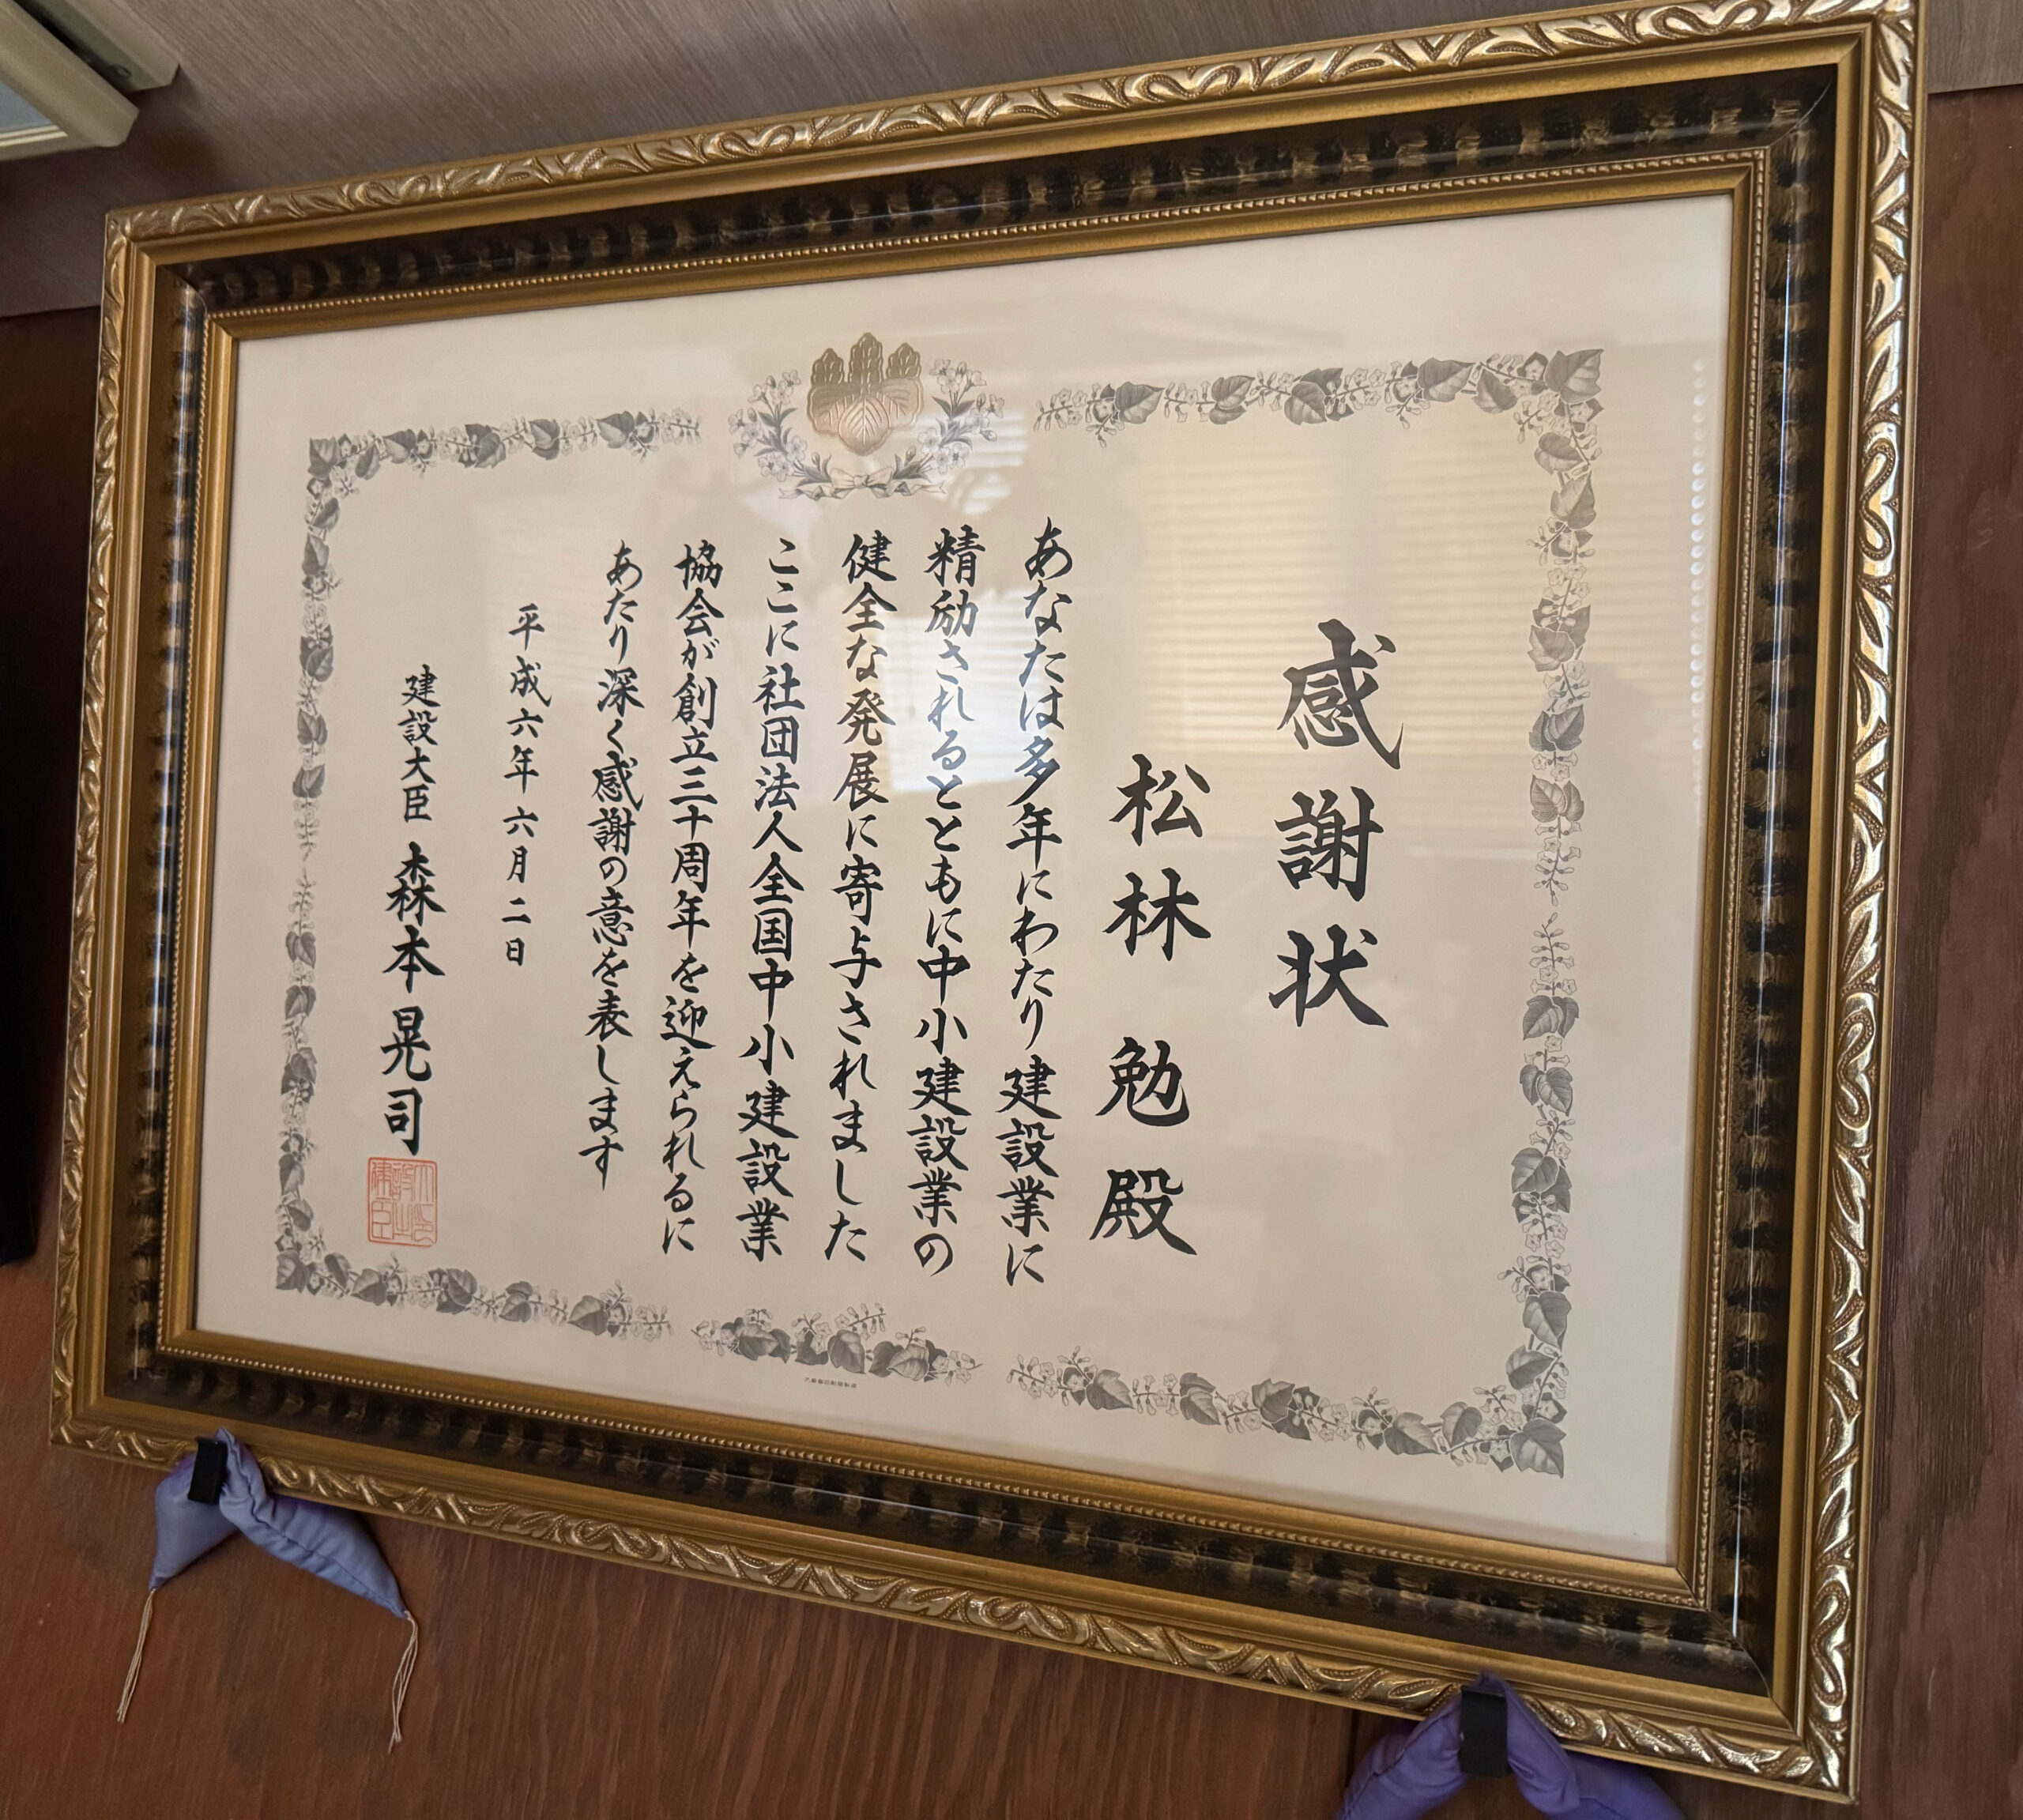 感謝状
松林 勉 殿
あなたは多年にわたり建設業に
精励されるとともに中小建設業の
健全な発展に寄与されました
ここに社団法人全国中小建設業
協会が創立三十周年を迎えられるに
あたり深く感謝の意を表します
平成六年六月二日
建設大臣 森本晃司